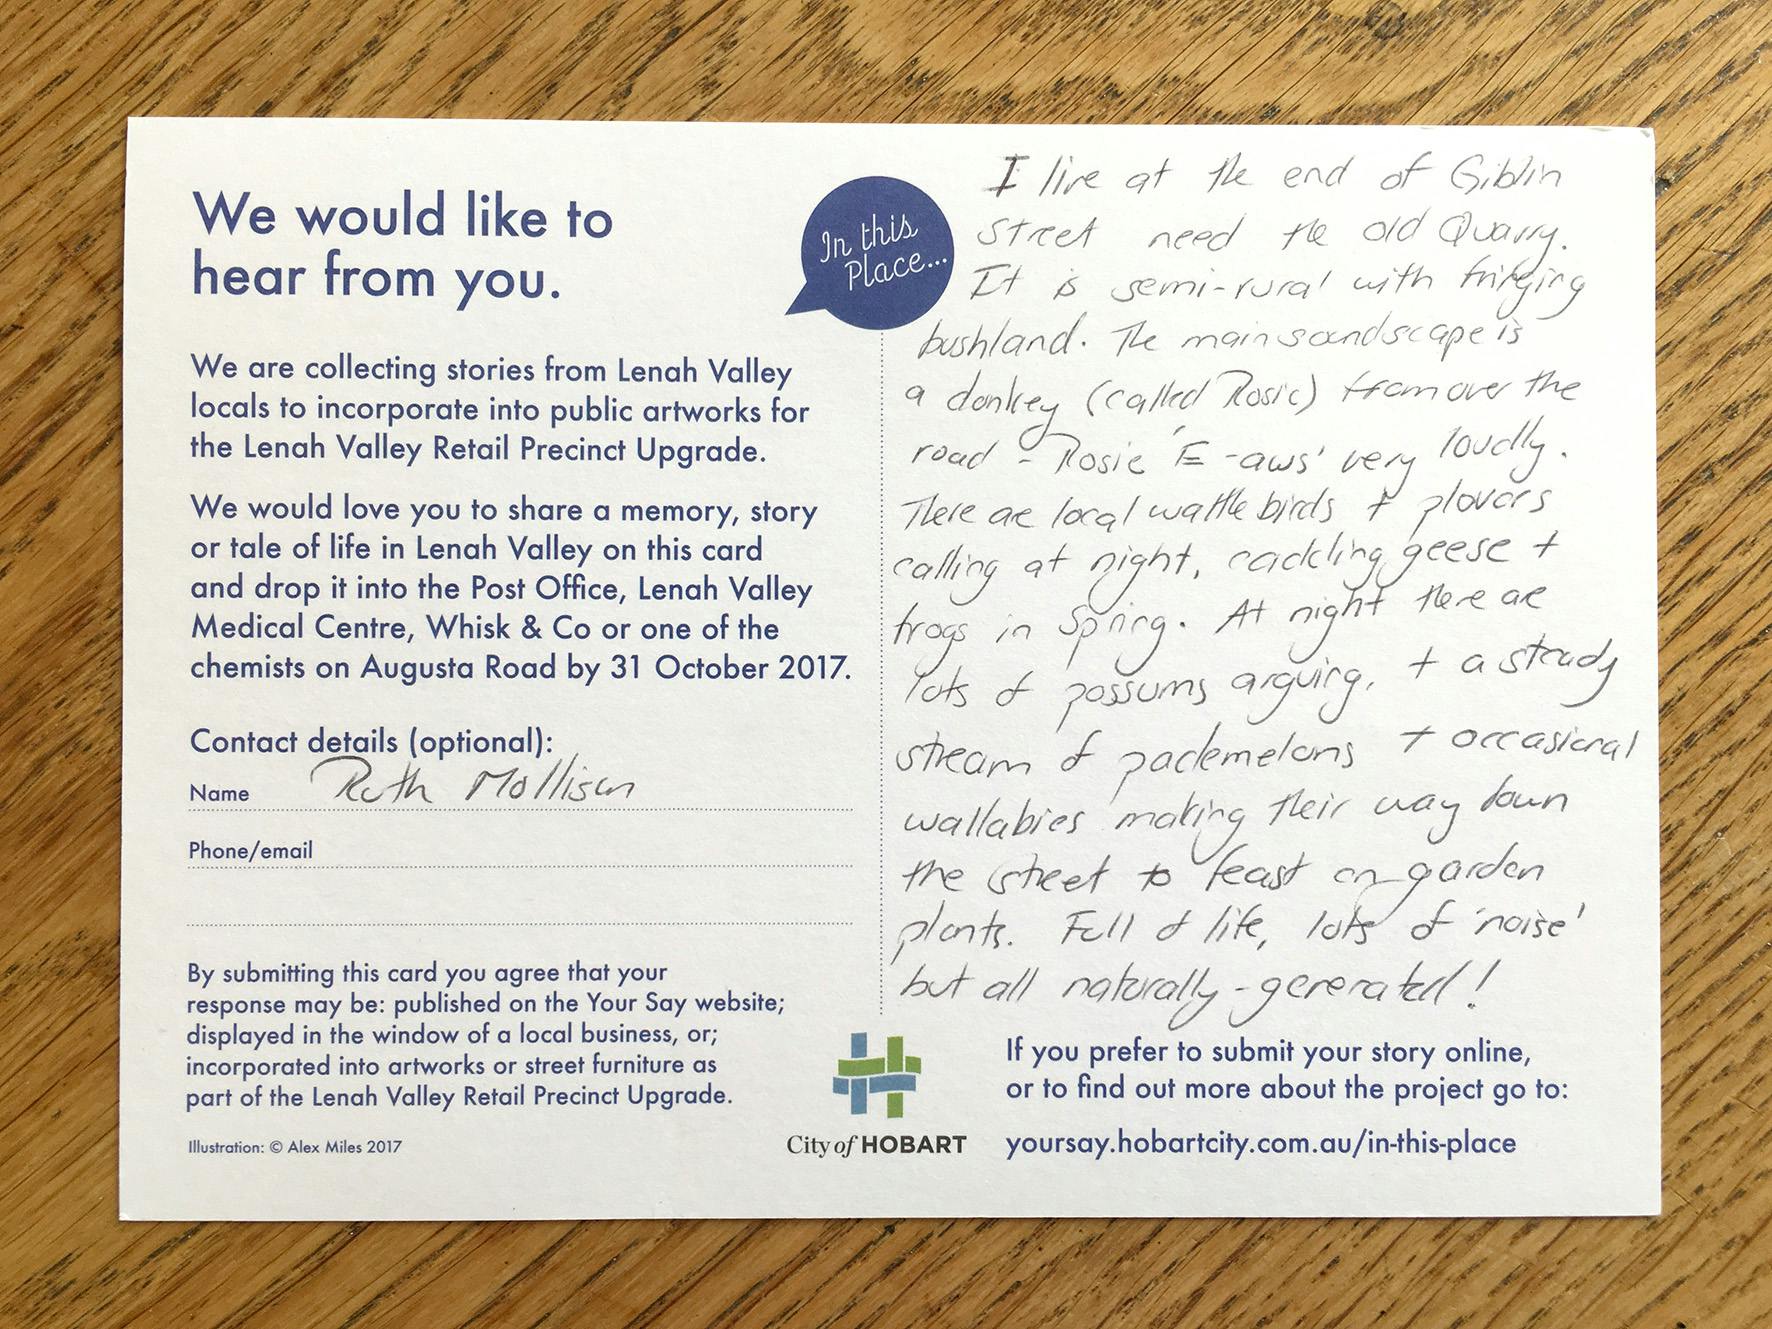 We would like to
hear from you.
We are collecting stories from Lenah Valley
locals to incorporate into public artworks for
the Lenah Valley Retail Precinct Upgrade.
We would love you to share a memory, story
or tale of life in Lenah Valley on this card
and drop it into the Post Office, Lenah Valley
Medical Centre, Whisk & Co or one of the
chemists on Augusta Road by 31 October 2017.
Contact details (optional):
Name Ruth Mollison
Phone/email
By submitting this card you agree that your
response may be: published on the Your Say website;
displayed in the window of a local business, or;
incorporated into artworks or street furniture as
part of the Lenah Valley Retail Precinct Upgrade.
Illustration: © Alex Miles 2017
In this
Place...
I live at the end of Giblin
Street need the old Quarry.
It is semi-rural with fringing
bushland. The main soundscape is
a donkey (called Rosie) from over the
road - Rosie 'E-aws' very loudly.
There are local wattle birds + plovers
calling at night, cackling geese +
frogs in Spring. At night there are
lots of possums arguing, + a steady
stream of pademelons + occasional
wallabies making their way down
the street to feast on garden
plants. Full of life, lots of 'noise'
but all naturally-generated!
City of HOBART
If you prefer to submit your story online,
or to find out more about the project go to:
yoursay.hobartcity.com.au/in-this-place